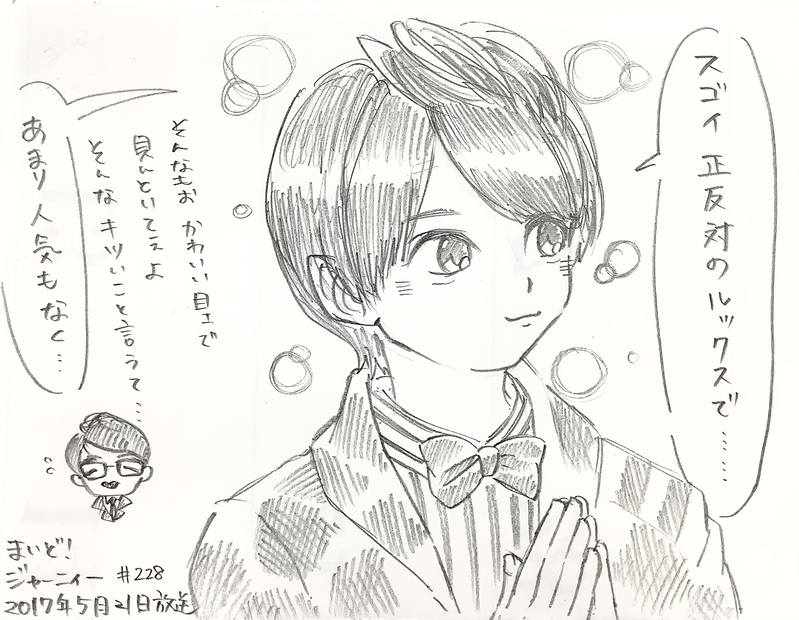 スゴイ 正反対のルックスで……
あまり人気もなく…
そんなもお かわいい目ェで
見んといてぇよ
そんな キツいこと言うて…
まいど!
ジャーニィー #228
2017年5月21日放送